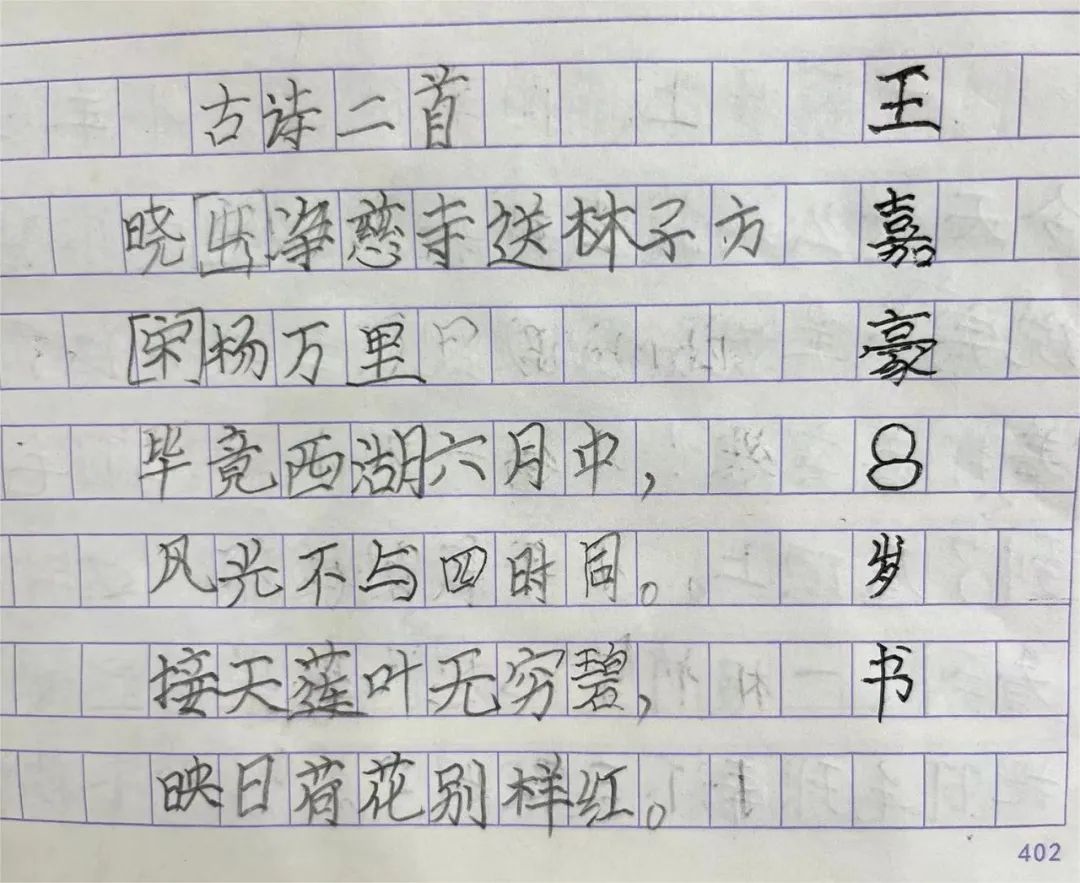 古诗二首
晓出净慈寺送林子方
[宋]杨万里
毕竟西湖六月中，
风光不与四时同。
接天莲叶无穷碧，
映日荷花别样红。
王嘉豪8岁书
402